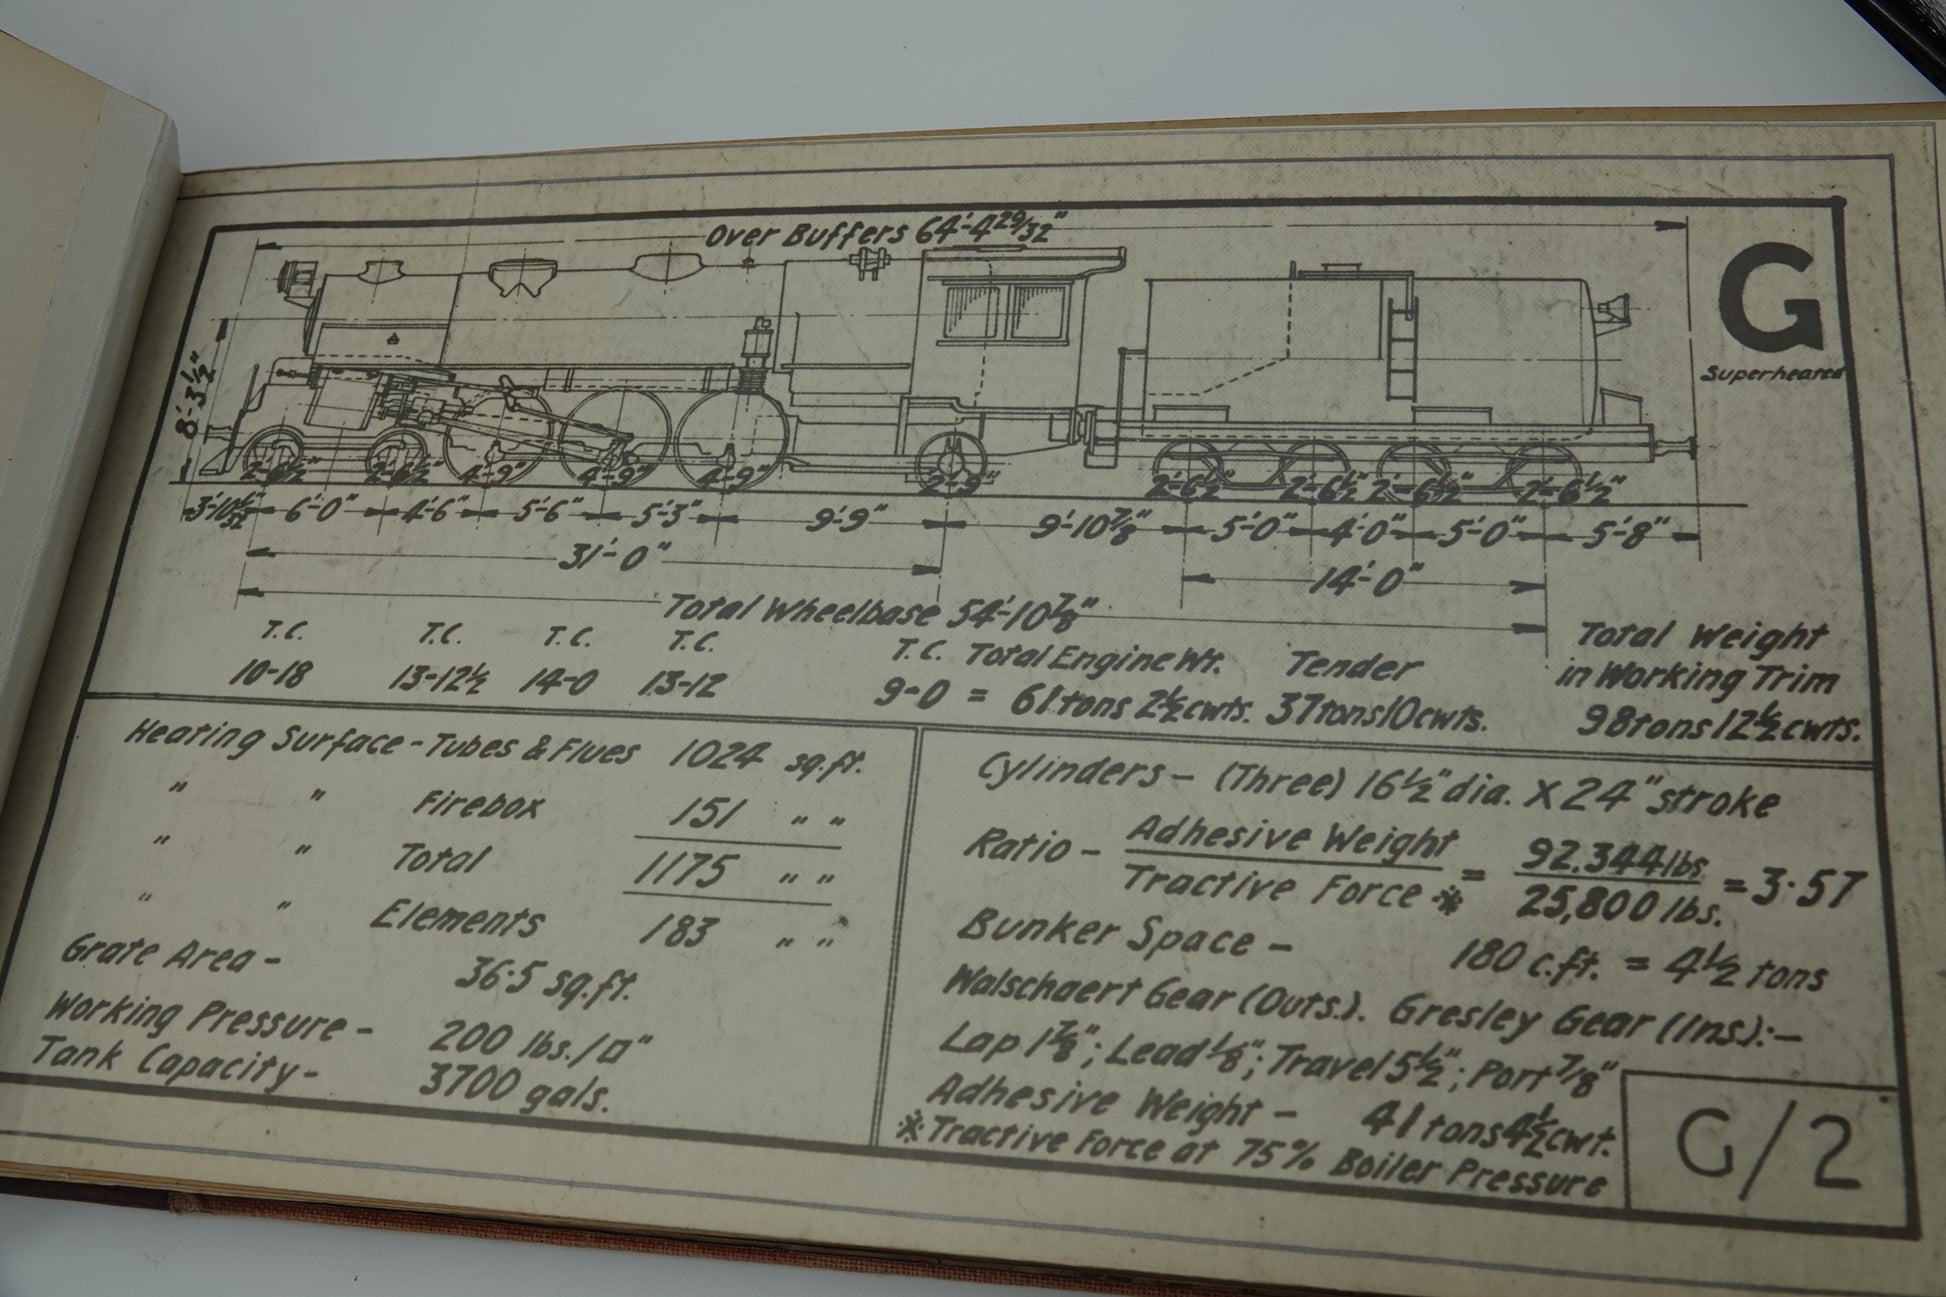 Over Buffers 64'-4 29/32"
G
Superheated
8'-3½"
2'-6½" 2'-6½" 4'-9" 4'-9" 4'-9" 2'-9" 2'-6½" 2'-6½" 2'-6½" 2'-6½"
6'-0" 4'-6" 5'-6" 5'-3" 9'-9" 9'-10⅞" 5'-0" 4'-0" 5'-0" 5'-8"
31'-0" 14'-0"
Total Wheelbase 54'-10⅞"
T.C. T.C. T.C. T.C. T.C. Total Engine Wt. Tender Total Weight in Working Trim
10-18 13-12½ 14-0 13-12 9-0 = 61 tons 2½ cwts. 37 tons 10 cwts. 98 tons 12½ cwts.
Heating Surface - Tubes & Flues 1024 sq.ft.
" " Firebox 151 " "
" " Total 1175 " "
" " Elements 183 " "
Grate Area - 36·5 sq.ft.
Working Pressure - 200 lbs./□"
Tank Capacity - 3700 gals.
Cylinders - (Three) 16½" dia. X 24" stroke
Ratio - Adhesive Weight / Tractive Force ※ = 92.344 lbs / 25,800 lbs. = 3·57
Bunker Space - 180 c.ft. = 4½ tons
Walschaert Gear (Outs.). Gresley Gear (Ins.):-
Lap 1⅞"; Lead ⅛"; Travel 5½"; Port ⅞"
Adhesive Weight - 41 tons 4½ cwt.
※ Tractive Force at 75% Boiler Pressure
G/2